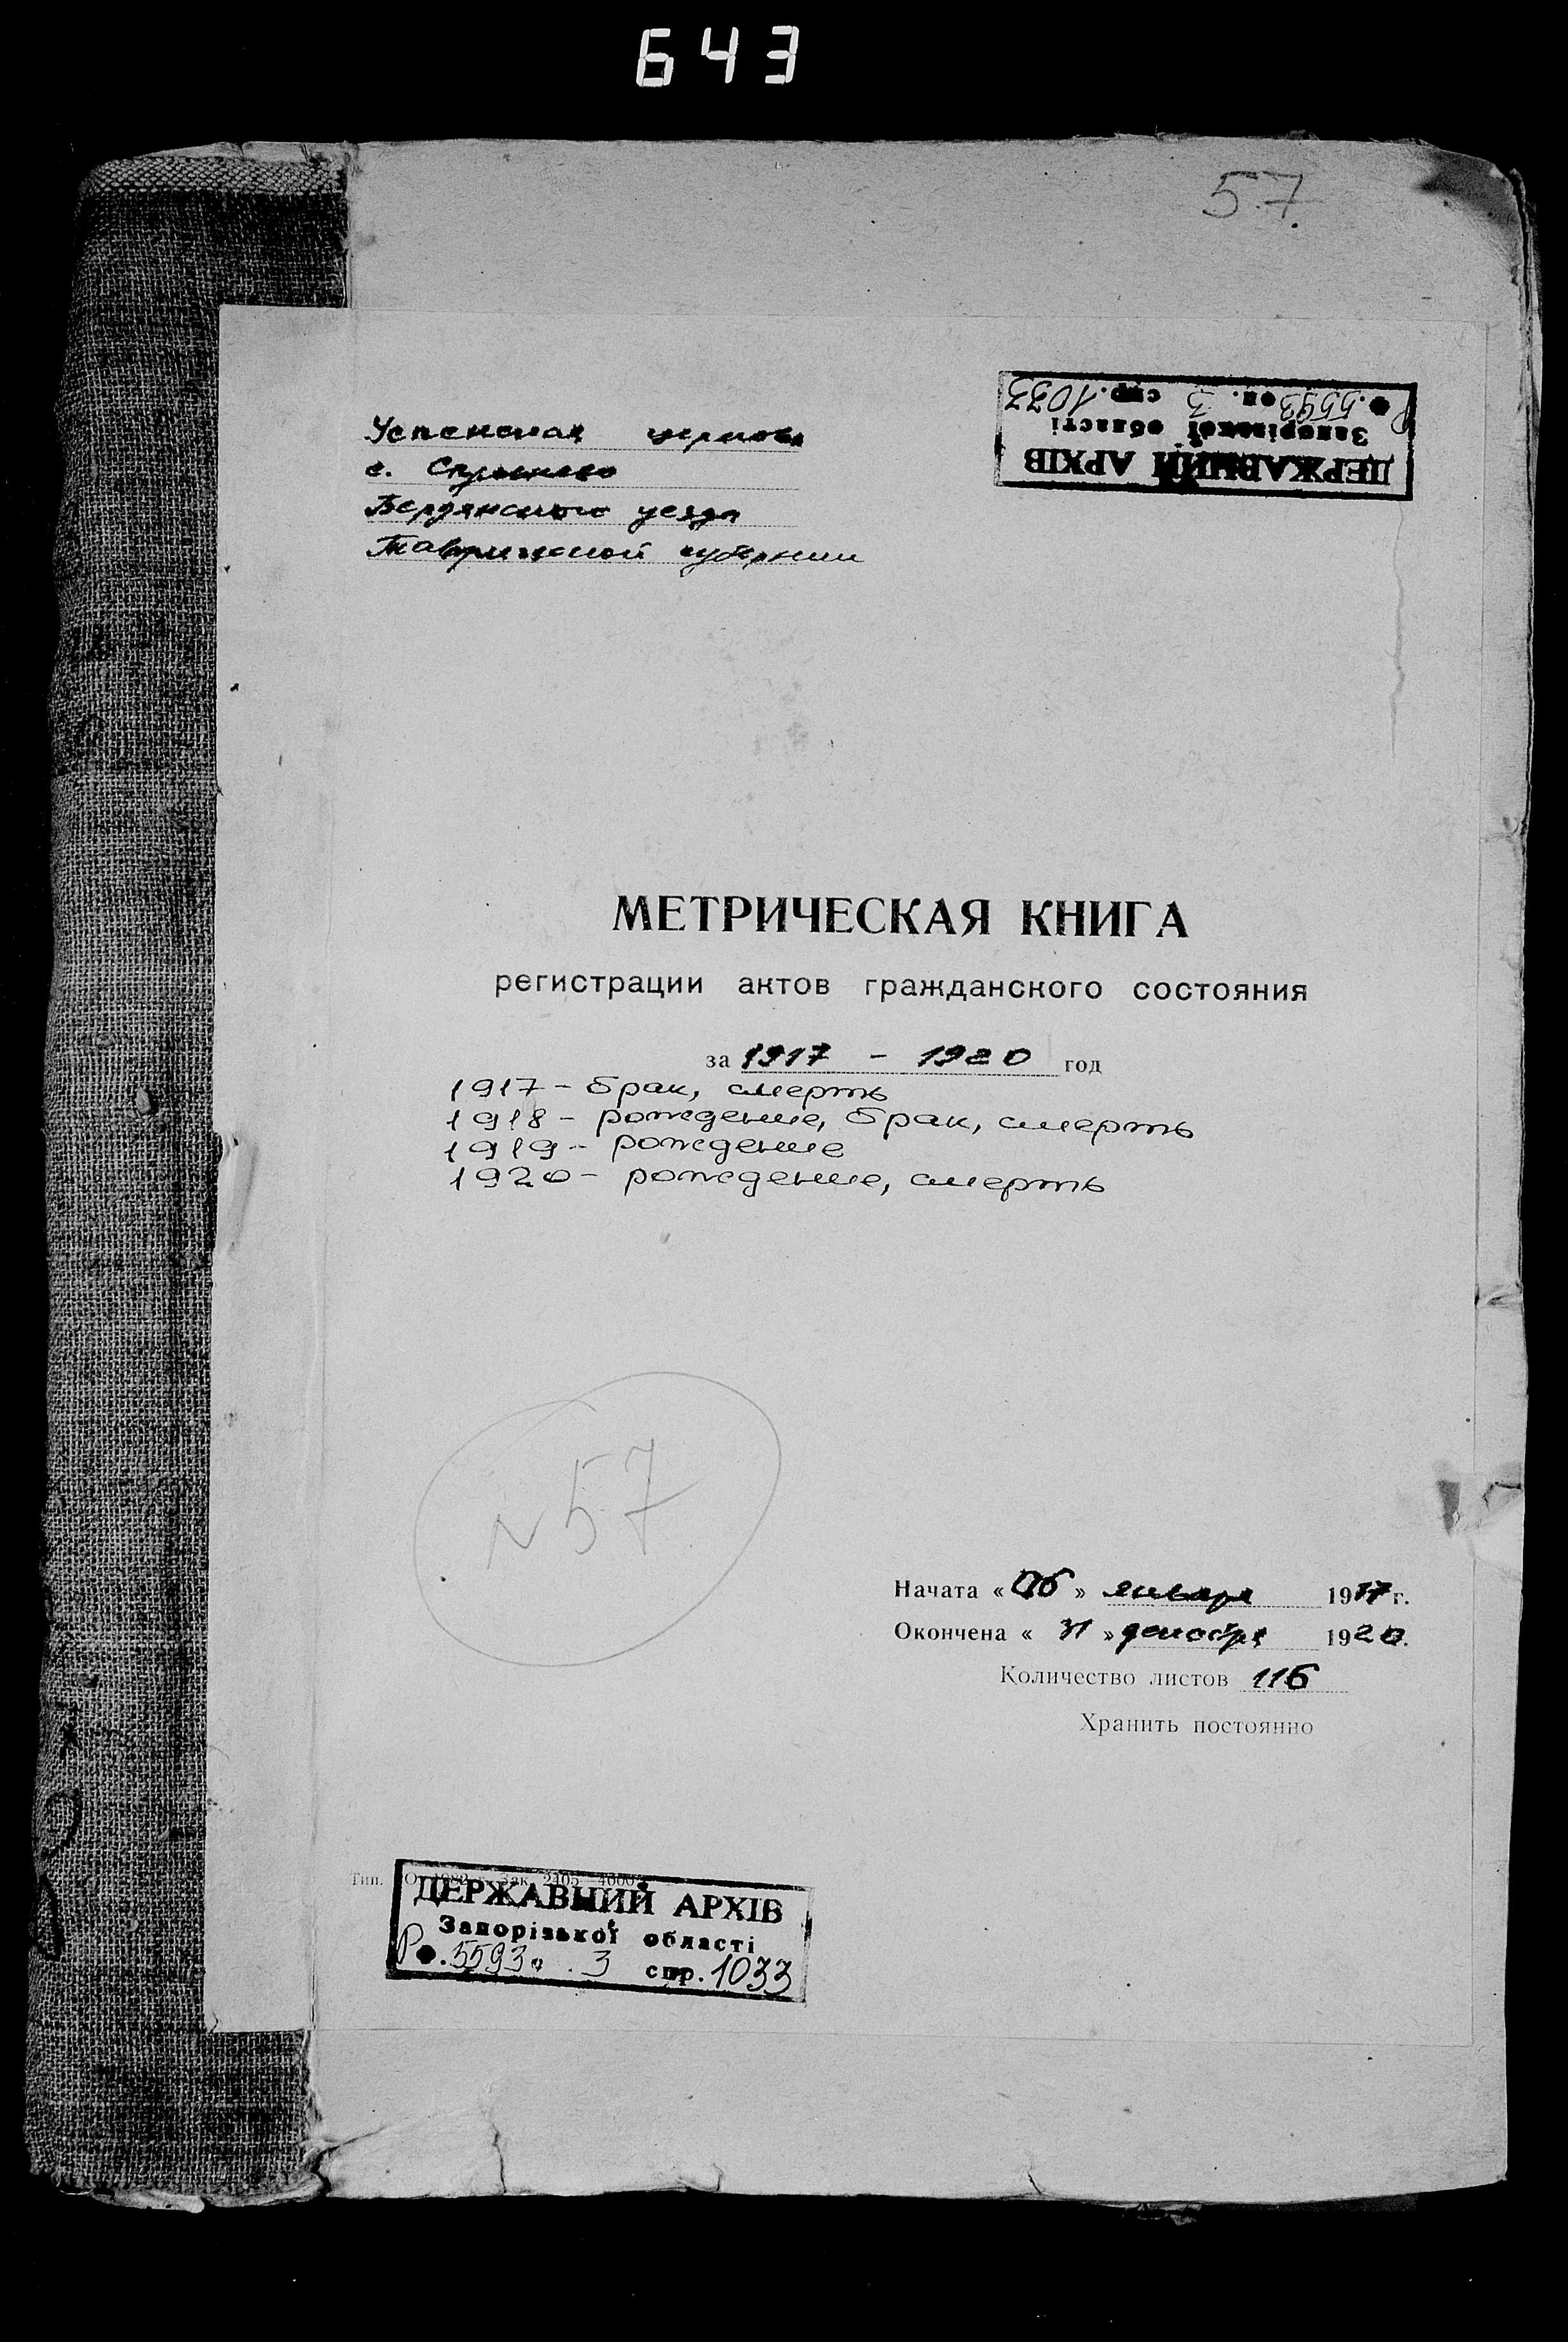 643
57.
Успенская церковь
с.
Бердянского уезда
Таврической губернии
ДЕРЖАВНИЙ АРХІВ
Запорізької області
Р ф. 5593 оп. 3 спр. 1033
МЕТРИЧЕСКАЯ КНИГА
регистрации актов гражданского состояния
за 1917 - 1920 год
1917 - брак, смерть
1918 - рождение, брак, смерть
1919 - рождение
1920 - рождение, смерть
N 57
Начата « » января 1917 г.
Окончена « 31 » декабря 1920.
Количество листов 116
Хранить постоянно
Тип. 1982 Зак. 2405 4000
ДЕРЖАВНИЙ АРХІВ
Запорізької області
Р ф. 5593 о . 3 спр. 1033